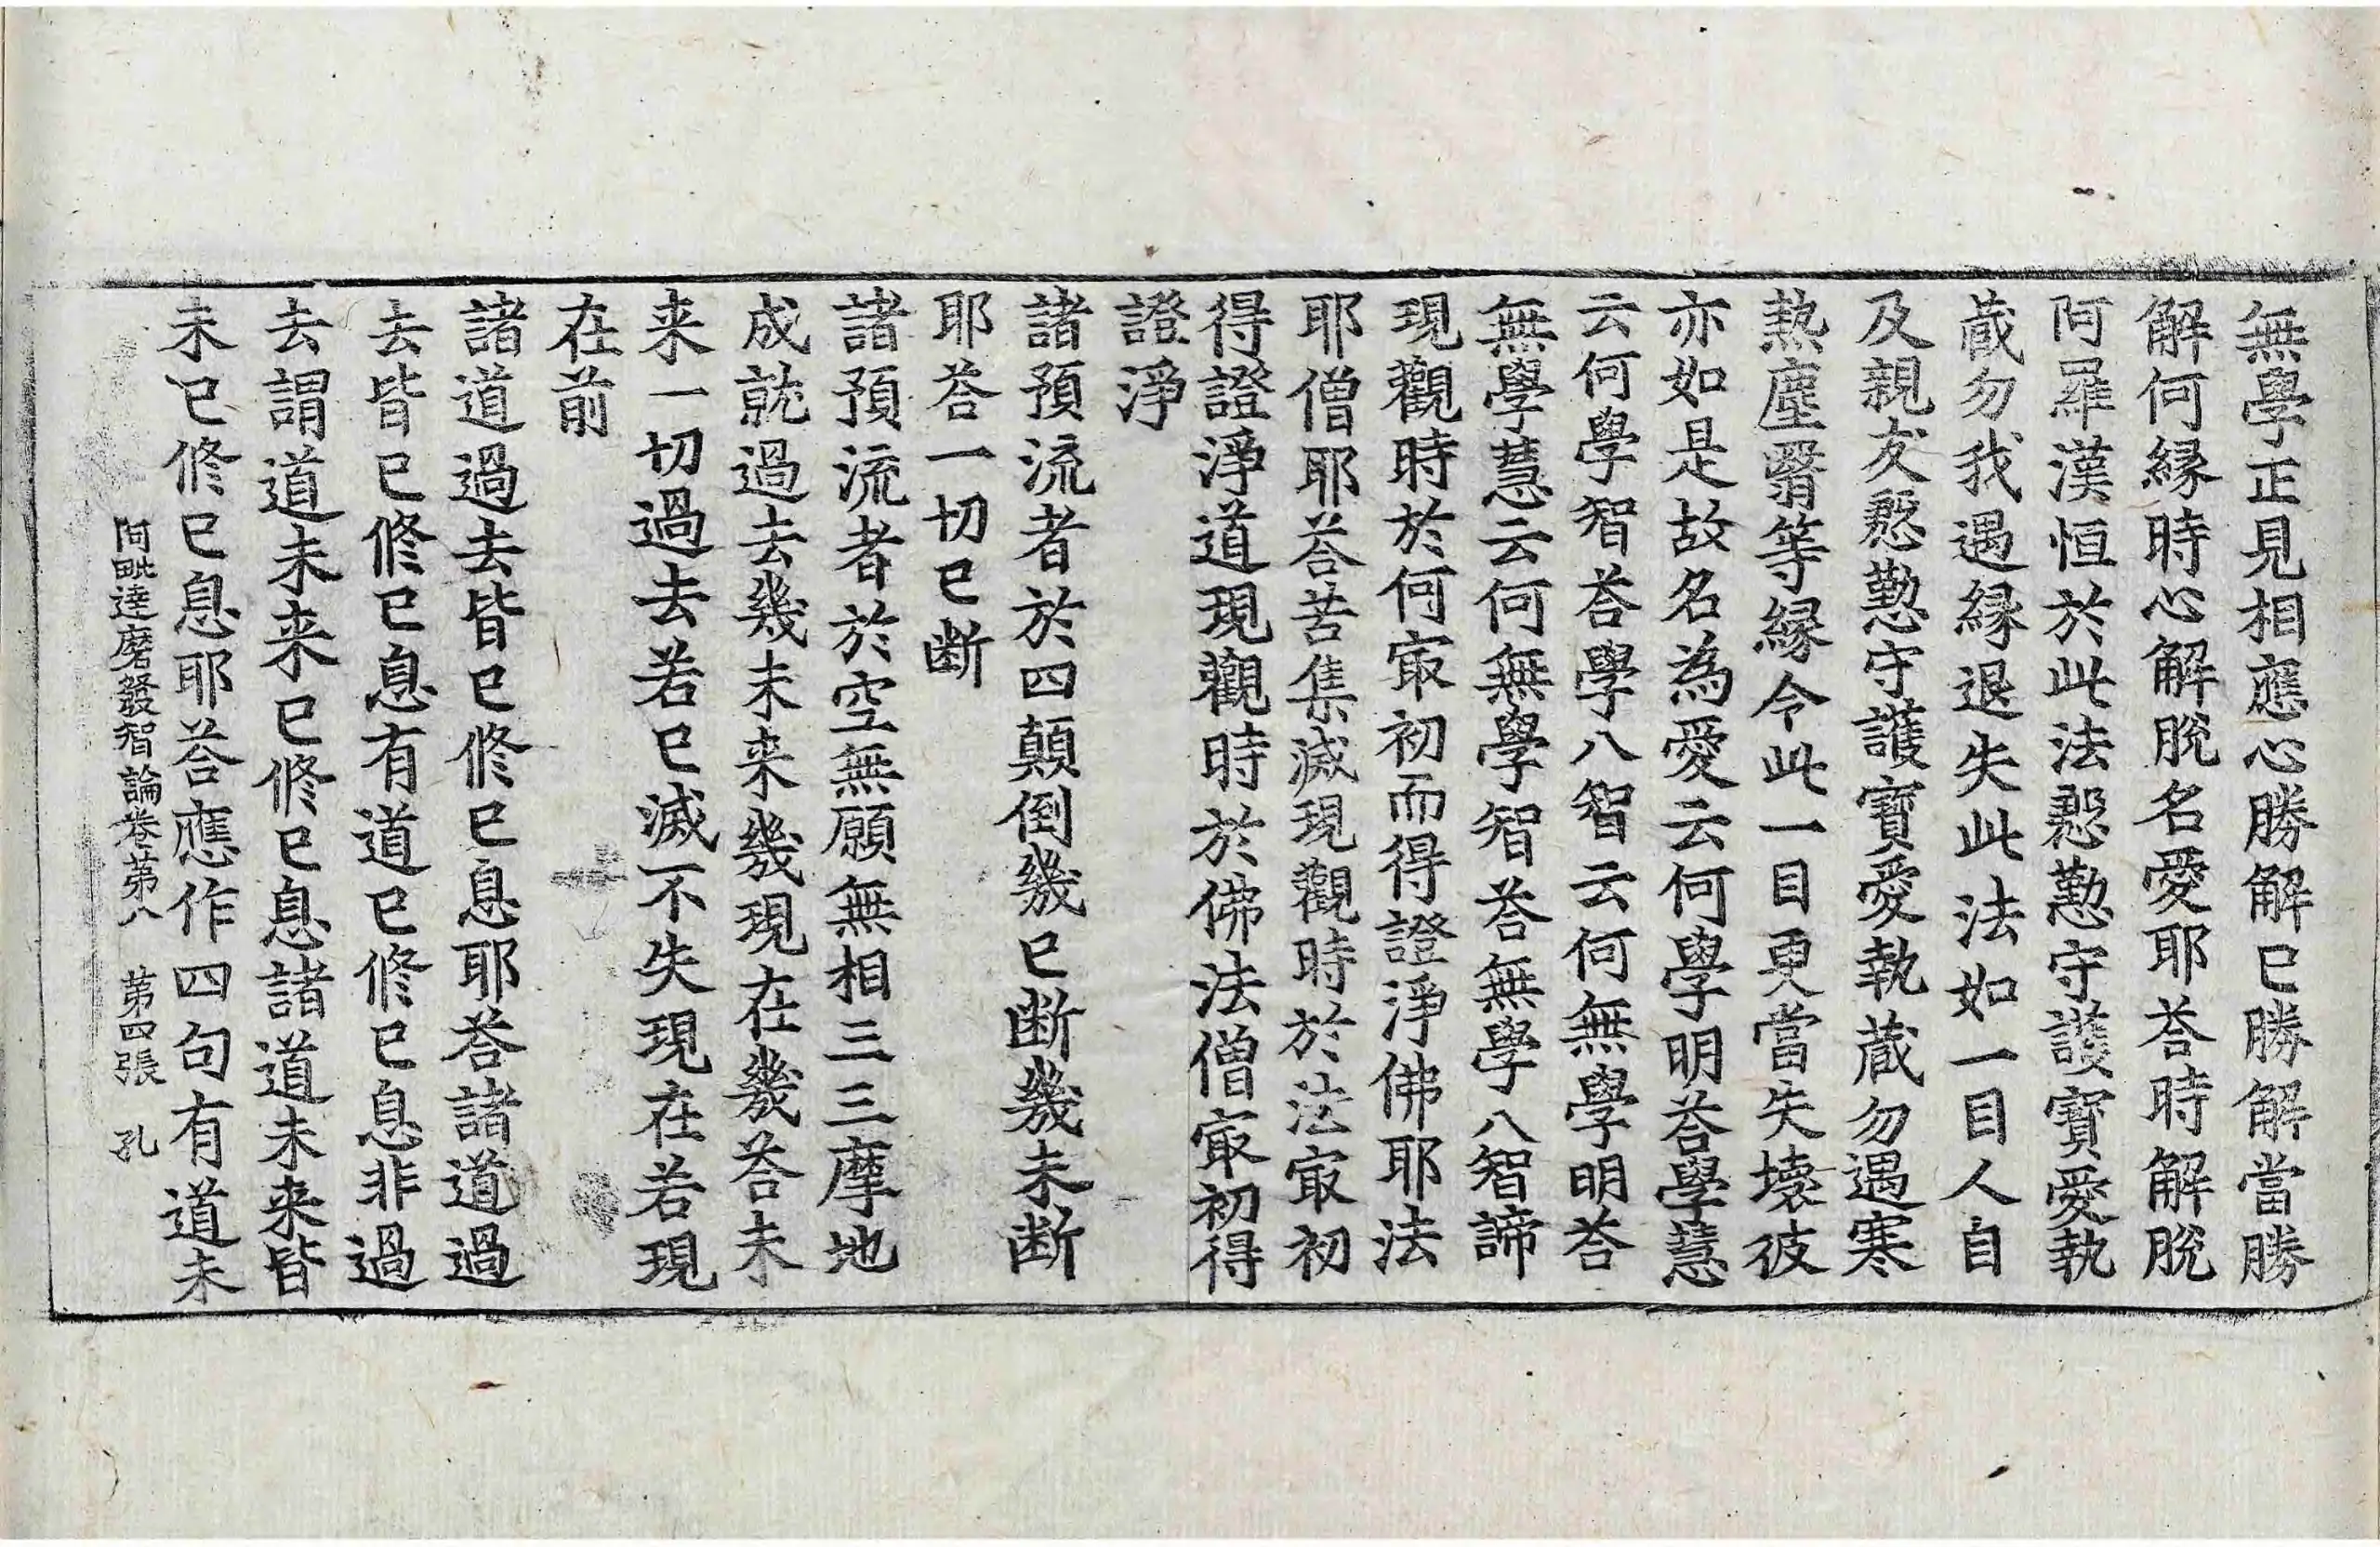 無學正見相應心勝解已勝解當勝
解何緣時心解脫名愛耶荅時解脫
阿羅漢恒於此法慇懃守護寶愛執
蔵勿我遇緣退失此法如一目人自
及親友慇懃守護寶愛執蔵勿遇寒
熱塵翳等緣令此一目更當失壞彼
亦如是故名為愛云何學明荅學慧
云何學智荅學八智云何無學明荅
無學慧云何無學智荅無學八智諦
現觀時於何㝡初而得證淨佛耶法
耶僧耶荅苦集滅現觀時於法㝡初
得證淨道現觀時於佛法僧㝡初得
證淨
諸預流者於四顛倒幾已断幾未断
耶荅一切已断
諸預流者於空無願無相三三摩地
成就過去幾未来幾現在幾荅未
来一切過去若已滅不失現在若現
在前
諸道過去皆已修已息耶荅諸道過
去皆已修已息有道已修已息非過
去謂道未来已修已息諸道未来皆
未已修已息耶荅應作四句有道未
阿毗達磨發智論卷苐八 苐四張 孔